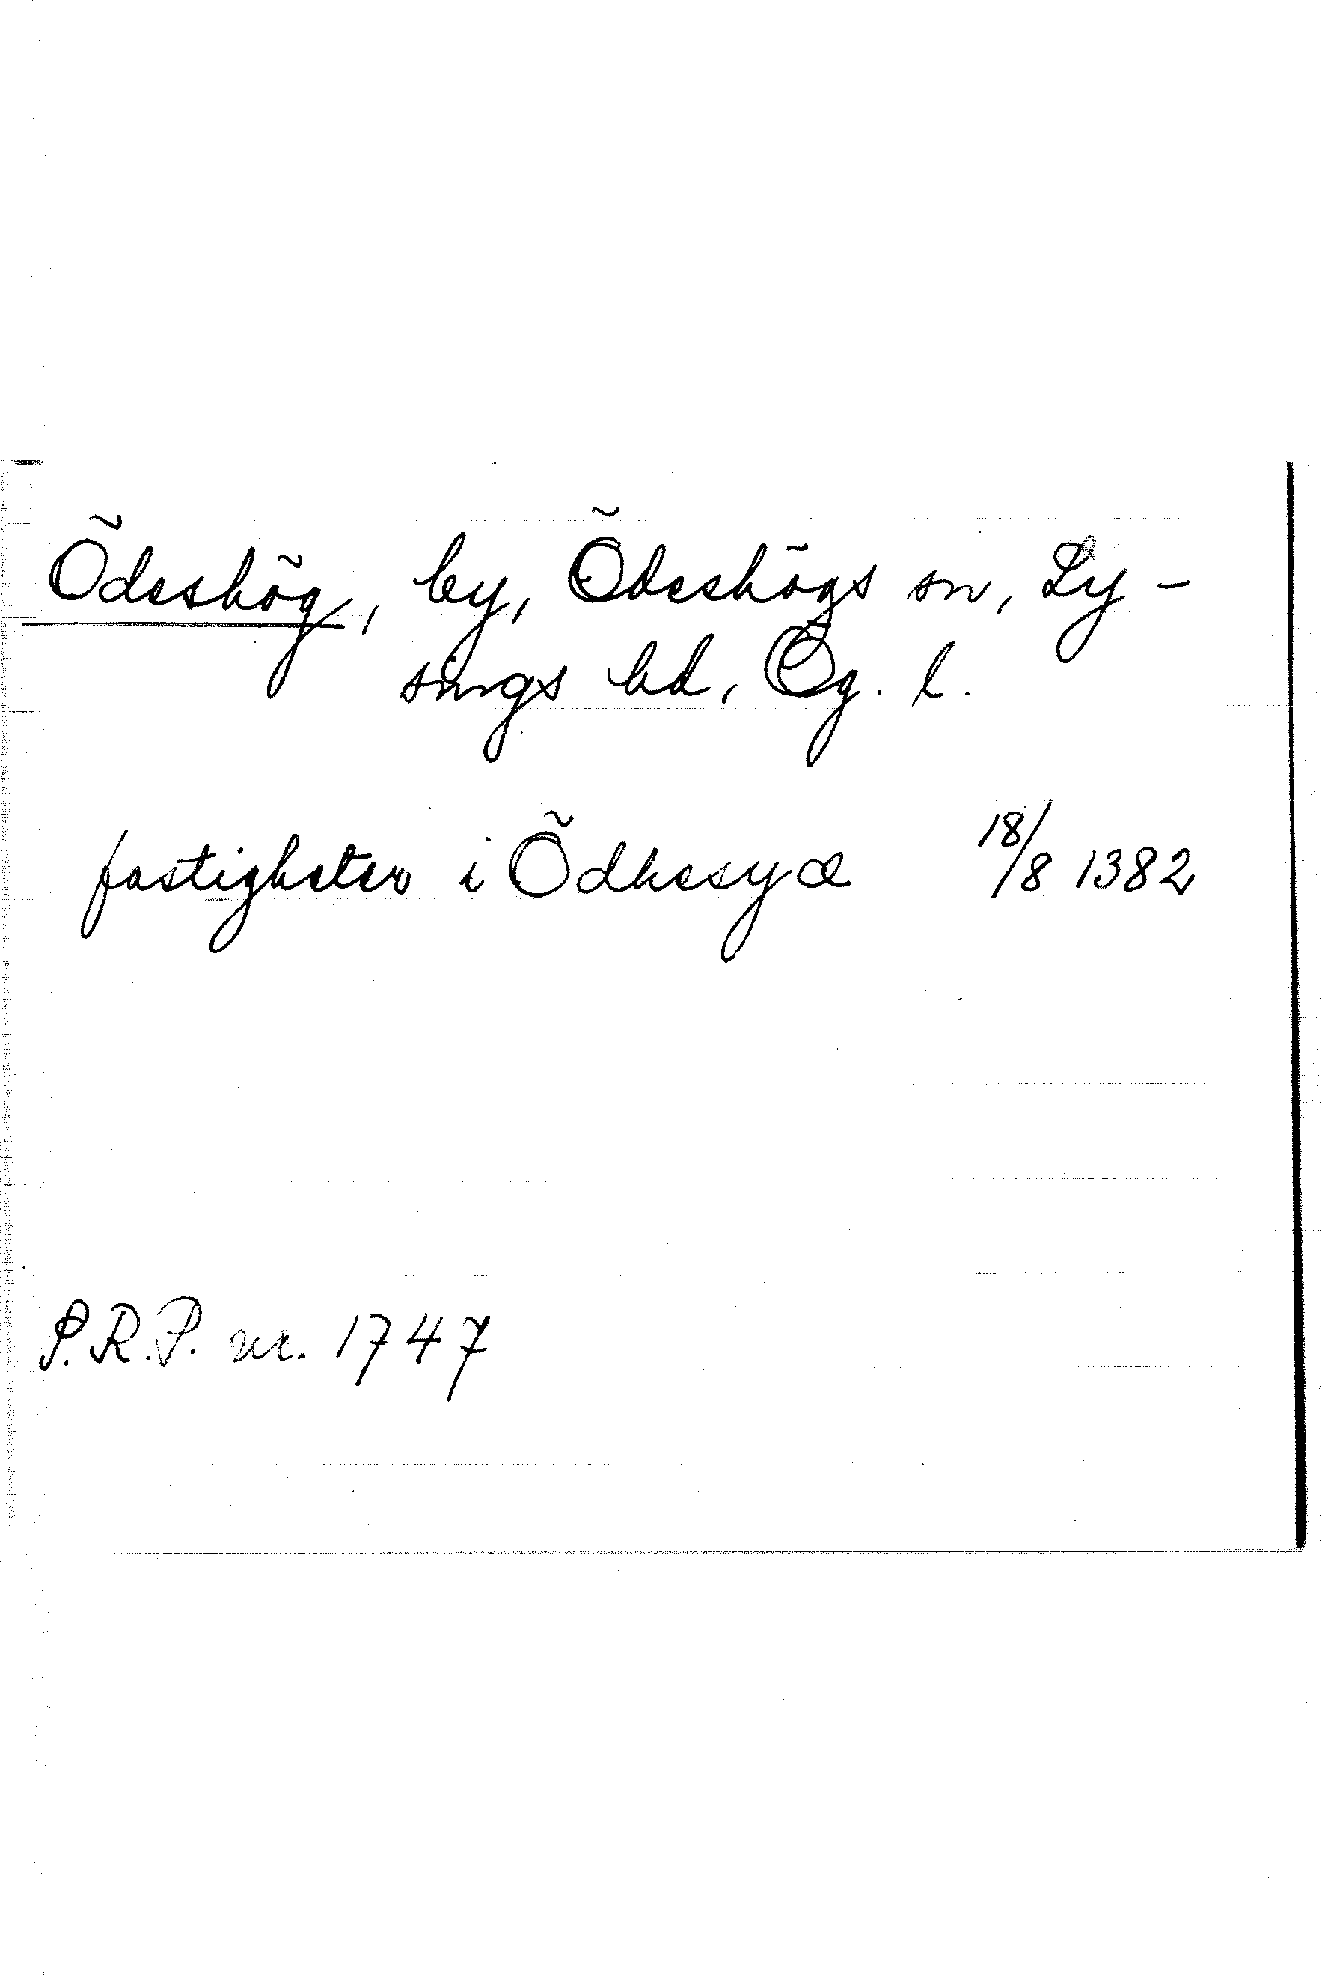 Ödeshög, by, Ödeshögs sn, Ly-
sings hd, Ög. l.
fastigheter i Ödhesyæ 18/8 1382
S.R.P. nr. 1747